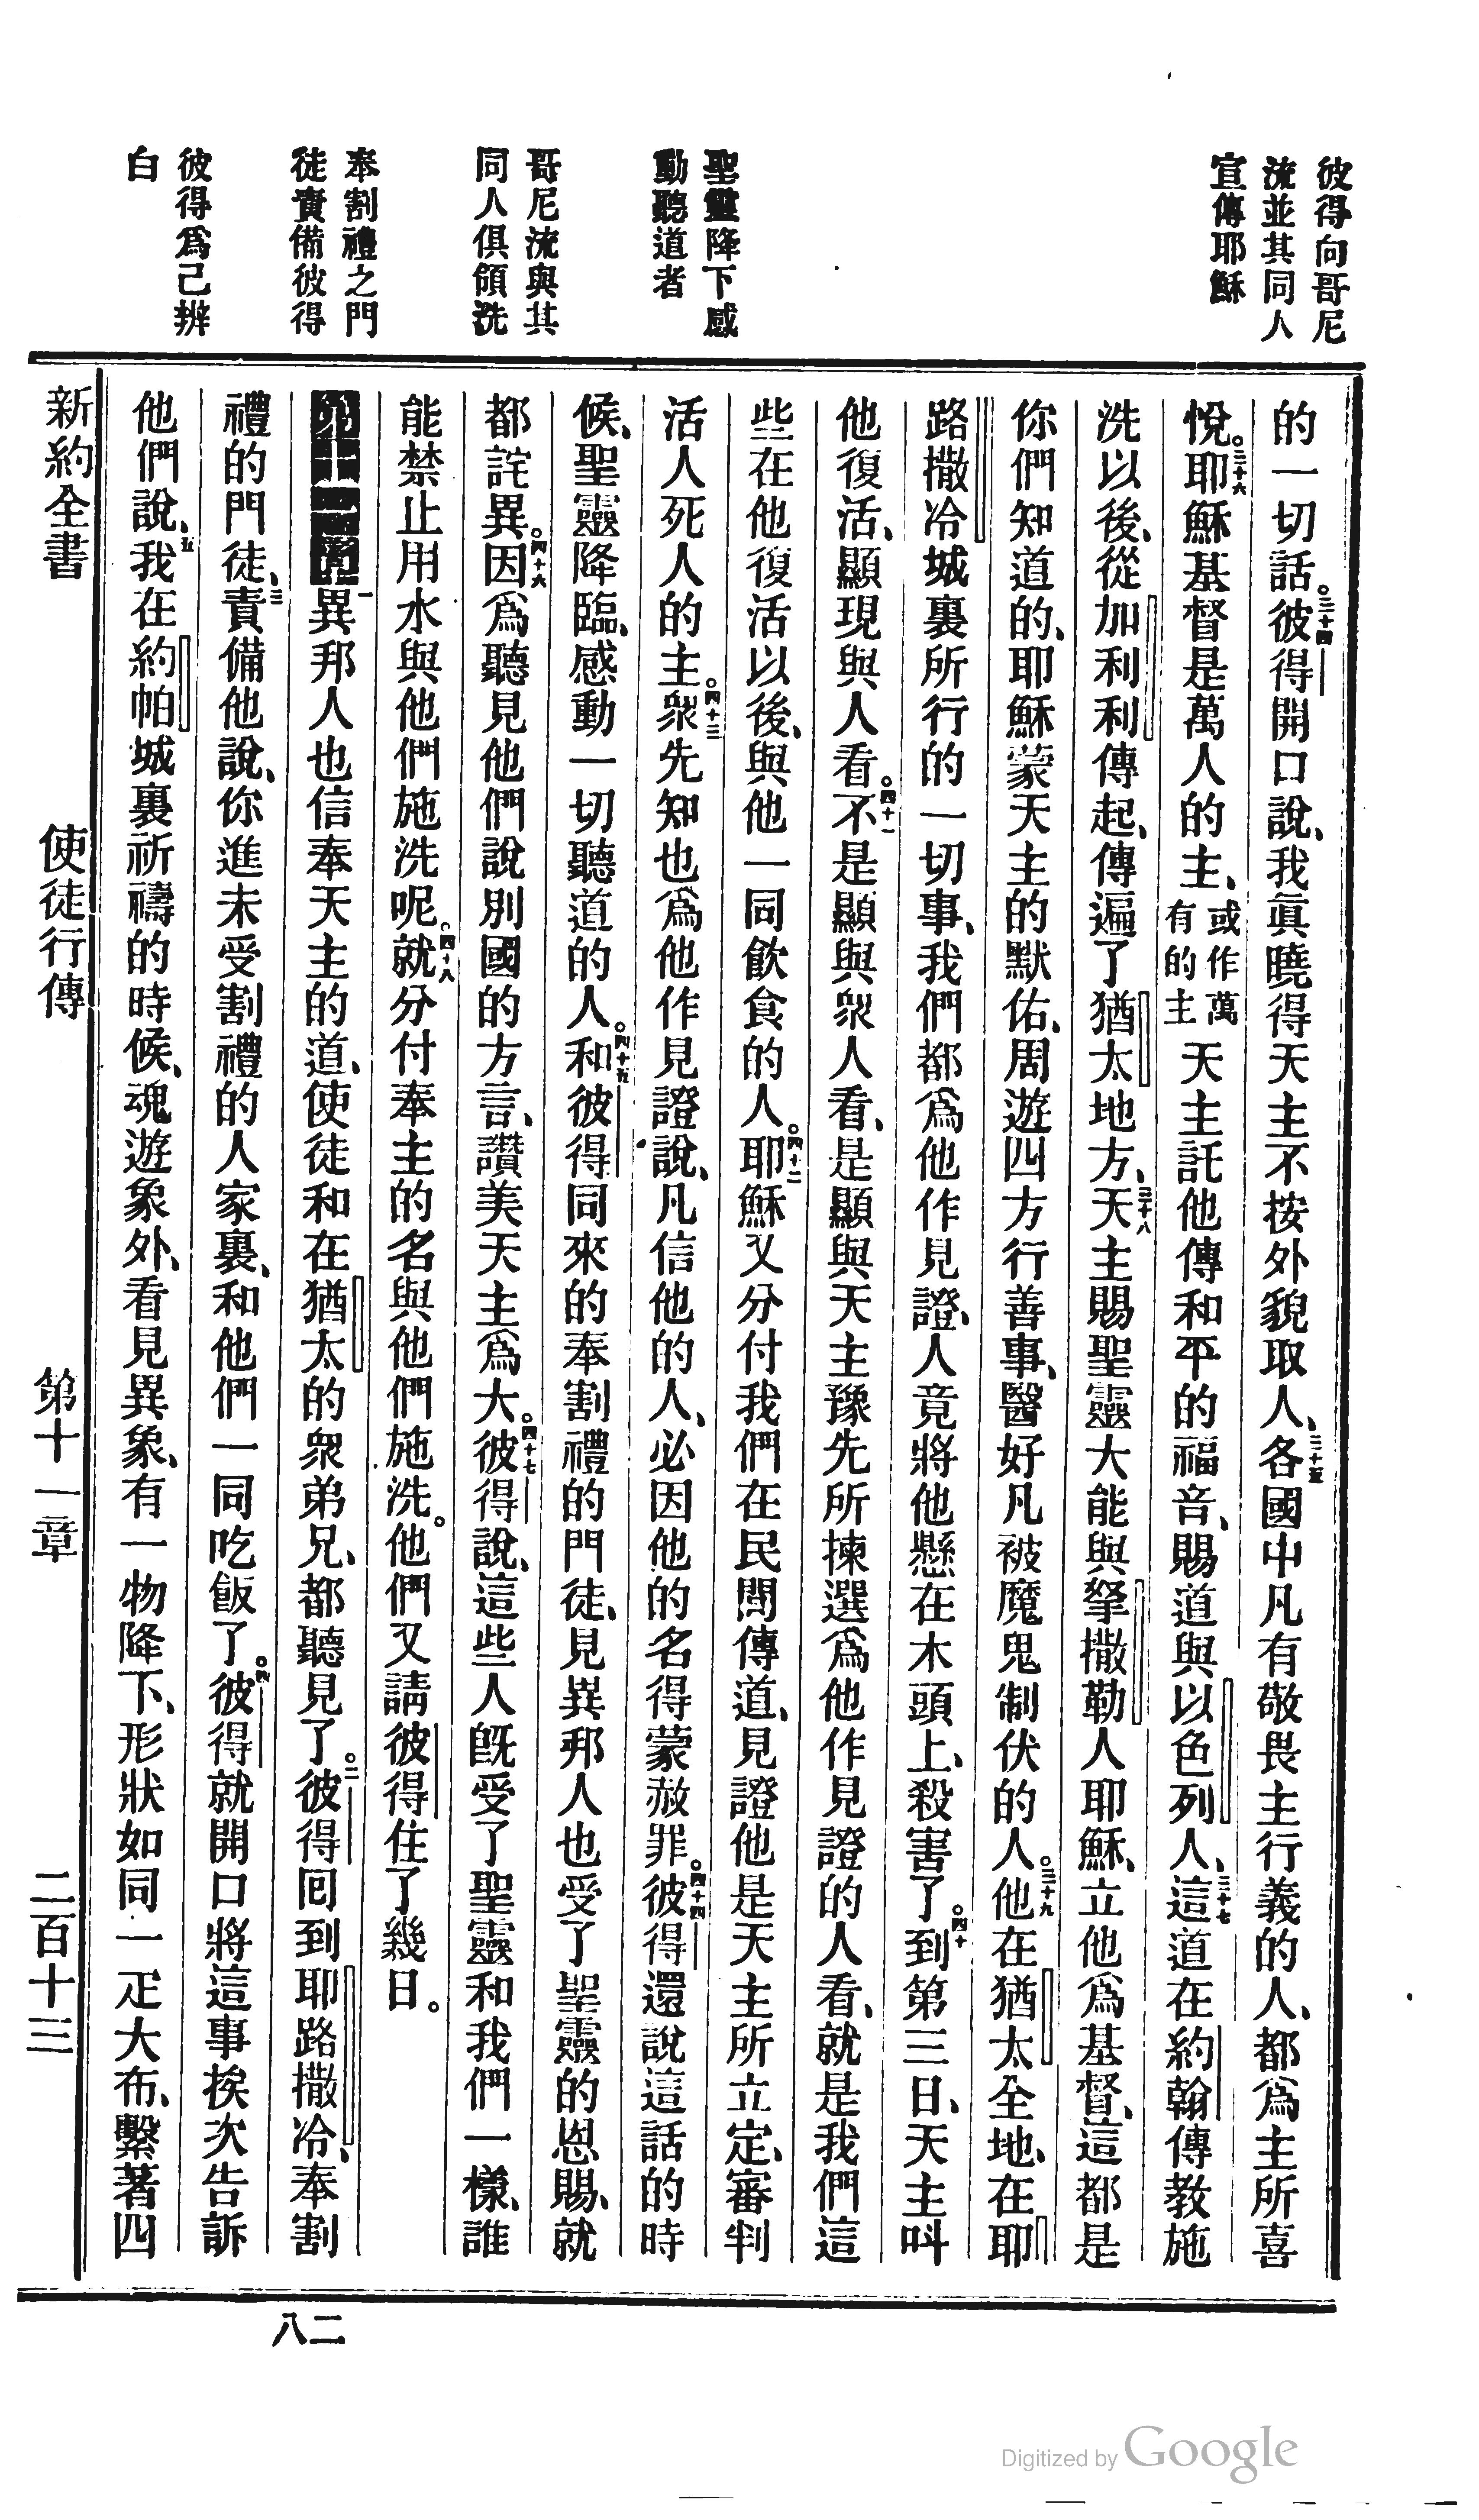 彼得向哥尼
流並其同人
宣傳耶穌
聖靈降下感
動聽道者
哥尼流與其
同人俱領洗
奉割禮之門
徒責備彼得
彼得爲己辨
白
的一切話。三十四彼得開口說、我眞曉得天主不按外貌取人、三十五各國中凡有敬畏主行義的人、都爲主所喜
悅。三十六耶穌基督是萬人的主、或作萬有的主天主託他傳和平的福音、賜道與以色列人、三十七這道在約翰傳教施
洗以後、從加利利傳起、傳遍了猶太地方、三十八天主賜聖靈大能與拏撒勒人耶穌、立他爲基督、這都是
你們知道的、耶穌蒙天主的默佑、周遊四方行善事、醫好凡被魔鬼制伏的人。三十九他在猶太全地、在耶
路撒冷城裏所行的一切事、我們都爲他作見證、人竟將他懸在木頭上、殺害了。四十到第三日、天主叫
他復活、顯現與人看。四十一不是顯與衆人看、是顯與天主豫先所揀選爲他作見證的人看、就是我們這
些在他復活以後、與他一同飲食的人。四十二耶穌又分付我們在民間傳道、見證他是天主所立定、審判
活人死人的主。四十三衆先知也爲他作見證說、凡信他的人、必因他的名得蒙赦罪。四十四彼得還說這話的時
候、聖靈降臨、感動一切聽道的人。四十五和彼得同來的奉割禮的門徒、見異邦人也受了聖靈的恩賜、就
都詫異。四十六因爲聽見他們說別國的方言、讚美天主爲大。四十七彼得說、這些人旣受了聖靈和我們一樣、誰
能禁止用水與他們施洗呢。四十八就分付奉主的名與他們施洗。他們又請彼得住了幾日。
一異邦人也信奉天主的道、使徒和在猶太的衆弟兄、都聽見了。二彼得囘到耶路撒冷、奉割
禮的門徒、三責備他說、你進未受割禮的人家裏、和他們一同吃飯了。四彼得就開口將這事挨次告訴
他們說、五我在約帕城裏祈禱的時候、魂遊象外、看見異象、有一物降下、形狀如同一疋大布、繫著四
新約全書
使徒行傳
第十一章
二百十三
二八
Digitized by Google